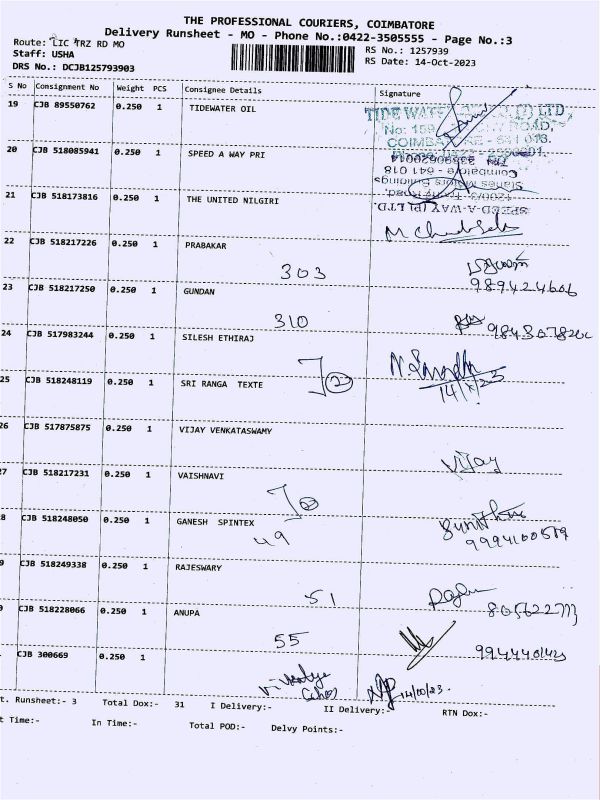 THE PROFESSIONAL COURIERS, COIMBATORE
Delivery Runsheet - MO - Phone No.:0422-3505555 - Page No.:3
Route: LIC TRZ RD MO
RS No.: 1257939
Staff: USHA
RS Date: 14-Oct-2023
DRS No.: DCJB125793903
S No Consignment No Weight PCS Consignee Details Signature
19 CJB 89550762 0.250 1 TIDEWATER OIL
20 CJB 518085941 0.250 1 SPEED A WAY PRI
21 CJB 518173816 0.250 1 THE UNITED NILGIRI
22 CJB 518217226 0.250 1 PRABAKAR
303
9894224606
23 CJB 518217250 0.250 1 GUNDAN
310
24 CJB 517983244 0.250 1 SILESH ETHIRAJ
25 CJB 518248119 0.250 1 SRI RANGA TEXTE
26 CJB 517875875 0.250 1 VIJAY VENKATASWAMY
Vijay
27 CJB 518217231 0.250 1 VAISHNAVI
8 CJB 518248050 0.250 1 GANESH SPINTEX
49
9 CJB 518249338 0.250 1 RAJESWARY
51
CJB 518228066 0.250 1 ANUPA
55
CJB 300669 0.250 1
t. Runsheet:- 3 Total Dox:- 31 I Delivery:- II Delivery:- RTN Dox:-
t Time:- In Time:- Total POD:- Delvy Points:-